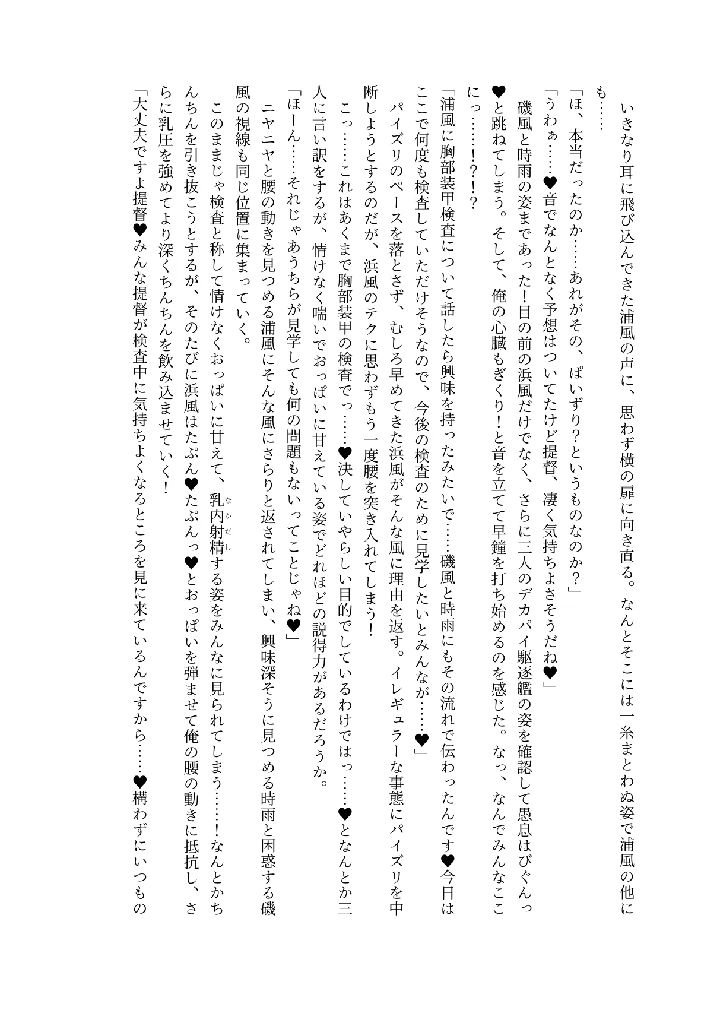 いきなり耳に飛び込んできた浦風の声に、思わず横の扉に向き直る。なんとそこには一糸まとわぬ姿で浦風の他に
も……
「ほ、本当だったのか……あれがその、ぱいずり？というものなのか？」
「うわぁ……♥音でなんとなく予想はついてたけど提督、凄く気持ちよさそうだね♥」
磯風と時雨の姿まであった！目の前の浜風だけでなく、さらに三人のデカパイ駆逐艦の姿を確認して愚息はびぐんっ
♥と跳ねてしまう。そして、俺の心臓もぎくり！と音を立てて早鐘を打ち始めるのを感じた。なっ、なんでみんなここ
にっ……！？！？
「浦風に胸部装甲検査について話したら興味を持ったみたいで……磯風と時雨にもその流れで伝わったんです♥今日は
ここで何度も検査していただけそうなので、今後の検査のために見学したいとみんなが……♥」
パイズリのペースを落とさず、むしろ早めてきた浜風がそんな風に理由を返す。イレギュラーな事態にパイズリを中
断しようとするのだが、浜風のテクに思わずもう一度腰を突き入れてしまう！
こっ……これはあくまで胸部装甲の検査でっ……♥決していやらしい目的でしているわけではっ……♥となんとか三
人に言い訳をするが、情けなく喘いでおっぱいに甘えている姿でどれほどの説得力があるだろうか。
「ほーん……それじゃあうちらが見学しても何の問題もないってことじゃね♥」
ニヤニヤと腰の動きを見つめる浦風にそんな風にさらりと返されてしまい、興味深そうに見つめる時雨と困惑する磯
風の視線も同じ位置に集まっていく。
このままじゃ検査と称して情けなくおっぱいに甘えて、乳内射精（なかだし）する姿をみんなに見られてしまう……！なんとかち
んちんを引き抜こうとするが、そのたびに浜風はたぷん♥たぷんっ♥とおっぱいを弾ませて俺の腰の動きに抵抗し、さ
らに乳圧を強めてより深くちんちんを飲み込ませていく！
「大丈夫ですよ提督♥みんな提督が検査中に気持ちよくなるところを見に来ているんですから……♥構わずにいつもの